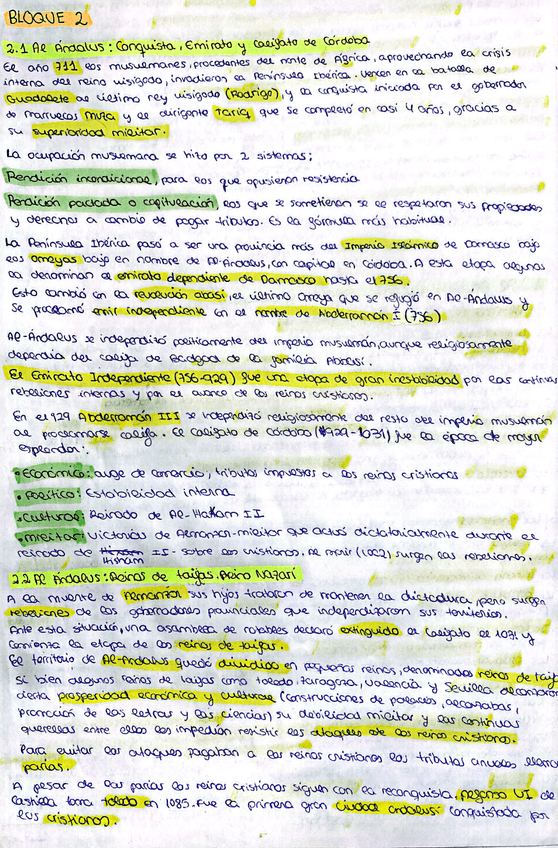 BLOQUE 2
2.1 Al Ándalus: Conquista, Emirato y Califato de Córdoba
El año 711 los musulmanes, procedentes del norte de África, aprovechando la crisis
interna del reino visigodo, invadieron la Península Ibérica. Vencen en la batalla de
Guadalete al último rey visigodo (Rodrigo), y la conquista iniciada por el gobernador
de marruecos Muza y el dirigente Tariq que se completó en casi 4 años, gracias a
su superioridad militar.
La ocupación musulmana se hizo por 2 sistemas:
Rendición incondicional, para los que opusieron resistencia
Rendición pactada o capitulación, los que se sometieron se le respetaron sus propiedades
y derechos a cambio de pagar tributos. Es la fórmula más habitual.
La Península Ibérica pasó a ser una provincia más del Imperio Islámico de Damasco bajo
los omeyas bajo en nombre de Al-Ándalus, con capital en Córdoba. A esta etapa algunos
la denominan el emirato dependiente de Damasco hasta el 756.
Esto cambió con la revolución abasí, el último omeya que se refugió en Al-Ándalus y
se proclamó emir independiente con el nombre de Abderramán I (756)
Al-Ándalus se independizó políticamente del imperio musulmán, aunque religiosamente
dependía del califa de Bagdad de la familia Abbasí.
El Emirato Independiente (756-929) fue una etapa de gran inestabilidad por las continuas
rebeliones internas y por el avance de los reinos cristianos.
En el 929 Abderramán III se independizó religiosamente del resto del imperio musulmán
al proclamarse califa. El Califato de Córdoba (929-1031) fue la época de mayor
esplendor:
• Económico: auge de comercio, tributos impuestos a los reinos cristianos
• Político: Estabilidad interna
• Cultural: Reinado de Al-Hakam II
• Militar: Victorias de Almanzor-militar que actuó dictatorialmente durante el
reinado de Hisham II- sobre los cristianos. Al morir (1002), surgen las rebeliones.
2.2 Al Ándalus: Reinos de taifas. Reino Nazarí
A la muerte de Almanzor sus hijos trataron de mantener la dictadura, pero surgen
rebeliones de los gobernadores provinciales que independizaron sus territorios.
Ante esta situación, una asamblea de notables declaró extinguido el Califato el 1031 y
comienza la etapa de los reinos de taifas.
El territorio de Al-Andalus quedó dividido en pequeños reinos, denominados reinos de taif
si bien algunos reinos de taifas como toledo, Zaragoza, valencia y Sevilla alcanzaron
cierta prosperidad económica y cultural (construcciones de palacios, alcazabas,
promoción de las letras y las ciencias) su debilidad militar y las continuas
querellas entre ellos les impedían resistir los ataques de los reinos cristianos.
Para evitar los ataques pagaban a los reinos cristianos los tributos anuales
parias.
A pesar de las parias los reinos cristianos siguen con la reconquista, Alfonso VI de
Castilla toma toledo en 1085. Fue la primera gran ciudad andalusí conquistada por
los cristianos.